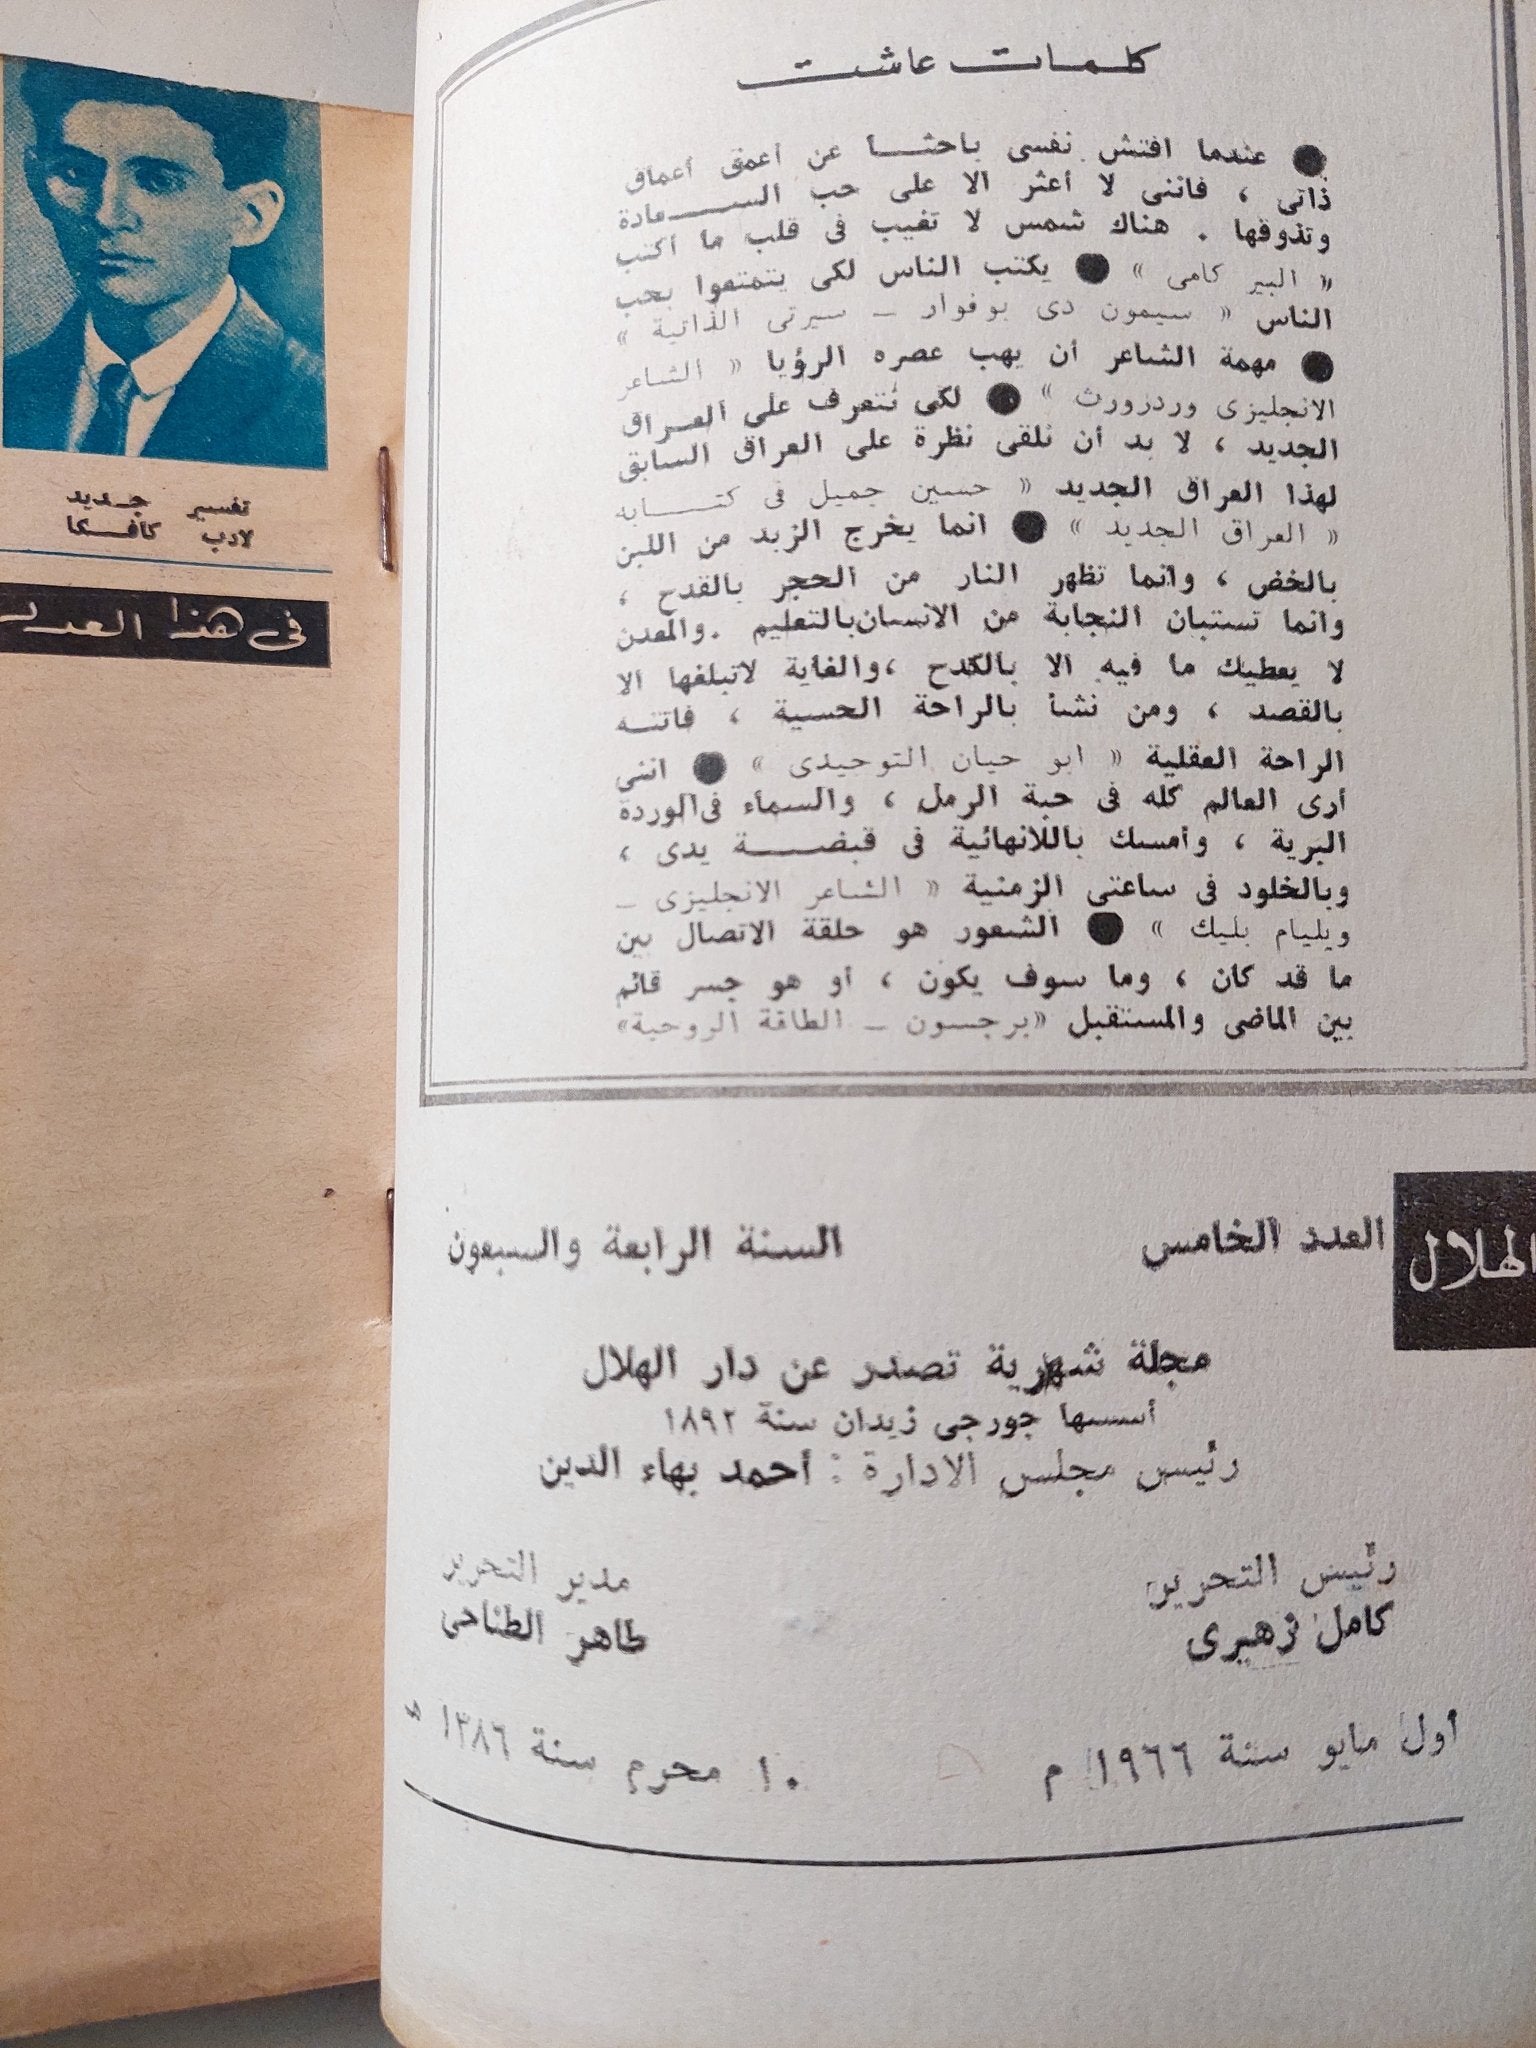 كلمات عاشت
● عندما افتش نفسى باحثا عن أعمق أعماق
ذاتى ، فاننى لا أعثر الا على حب السعادة
وتذوقها . هناك شمس لا تغيب فى قلب ما أكتب
« البير كامى » ● يكتب الناس لكى يتمتعوا بحب
الناس « سيمون دى بوفوار ــ سيرتى الذاتية »
● مهمة الشاعر أن يهب عصره الرؤيا « الشاعر
الانجليزى وردزورث » ● لكى نتعرف على العراق
الجديد ، لا بد أن نلقى نظرة على العراق السابق
لهذا العراق الجديد « حسين جميل فى كتابه
« العراق الجديد » ● انما يخرج الزبد من اللبن
بالخض ، وانما تظهر النار من الحجر بالقدح ،
وانما تستبان النجابة من الانسان بالتعليم . والمعدن
لا يعطيك ما فيه الا بالكدح ، والغاية لاتبلغها الا
بالقصد ، ومن نشأ بالراحة الحسية ، فاتته
الراحة العقلية « ابو حيان التوحيدى » ● اننى
أرى العالم كله فى حبة الرمل ، والسماء فى الوردة
البرية ، وأمسك باللانهائية فى قبضة يدى ،
وبالخلود فى ساعتى الزمنية « الشاعر الانجليزى ــ
ويليام بليك » ● الشعور هو حلقة الاتصال بين
ما قد كان ، وما سوف يكون ، أو هو جسر قائم
بين الماضى والمستقبل «برجسون ــ الطاقة الروحية»
الهلال
العدد الخامس السنة الرابعة والسبعون
مجلة شهرية تصدر عن دار الهلال
أسسها جورجى زيدان سنة ١٨٩٢
رئيس مجلس الادارة : أحمد بهاء الدين
رئيس التحرير مدير التحرير
كامل زهيرى طاهر الطناحى
أول مايو سنة ١٩٦٦ م ١٠ محرم سنة ١٣٨٦ هـ
تفسير جديد
لادب كافكا
فى هذا العدد